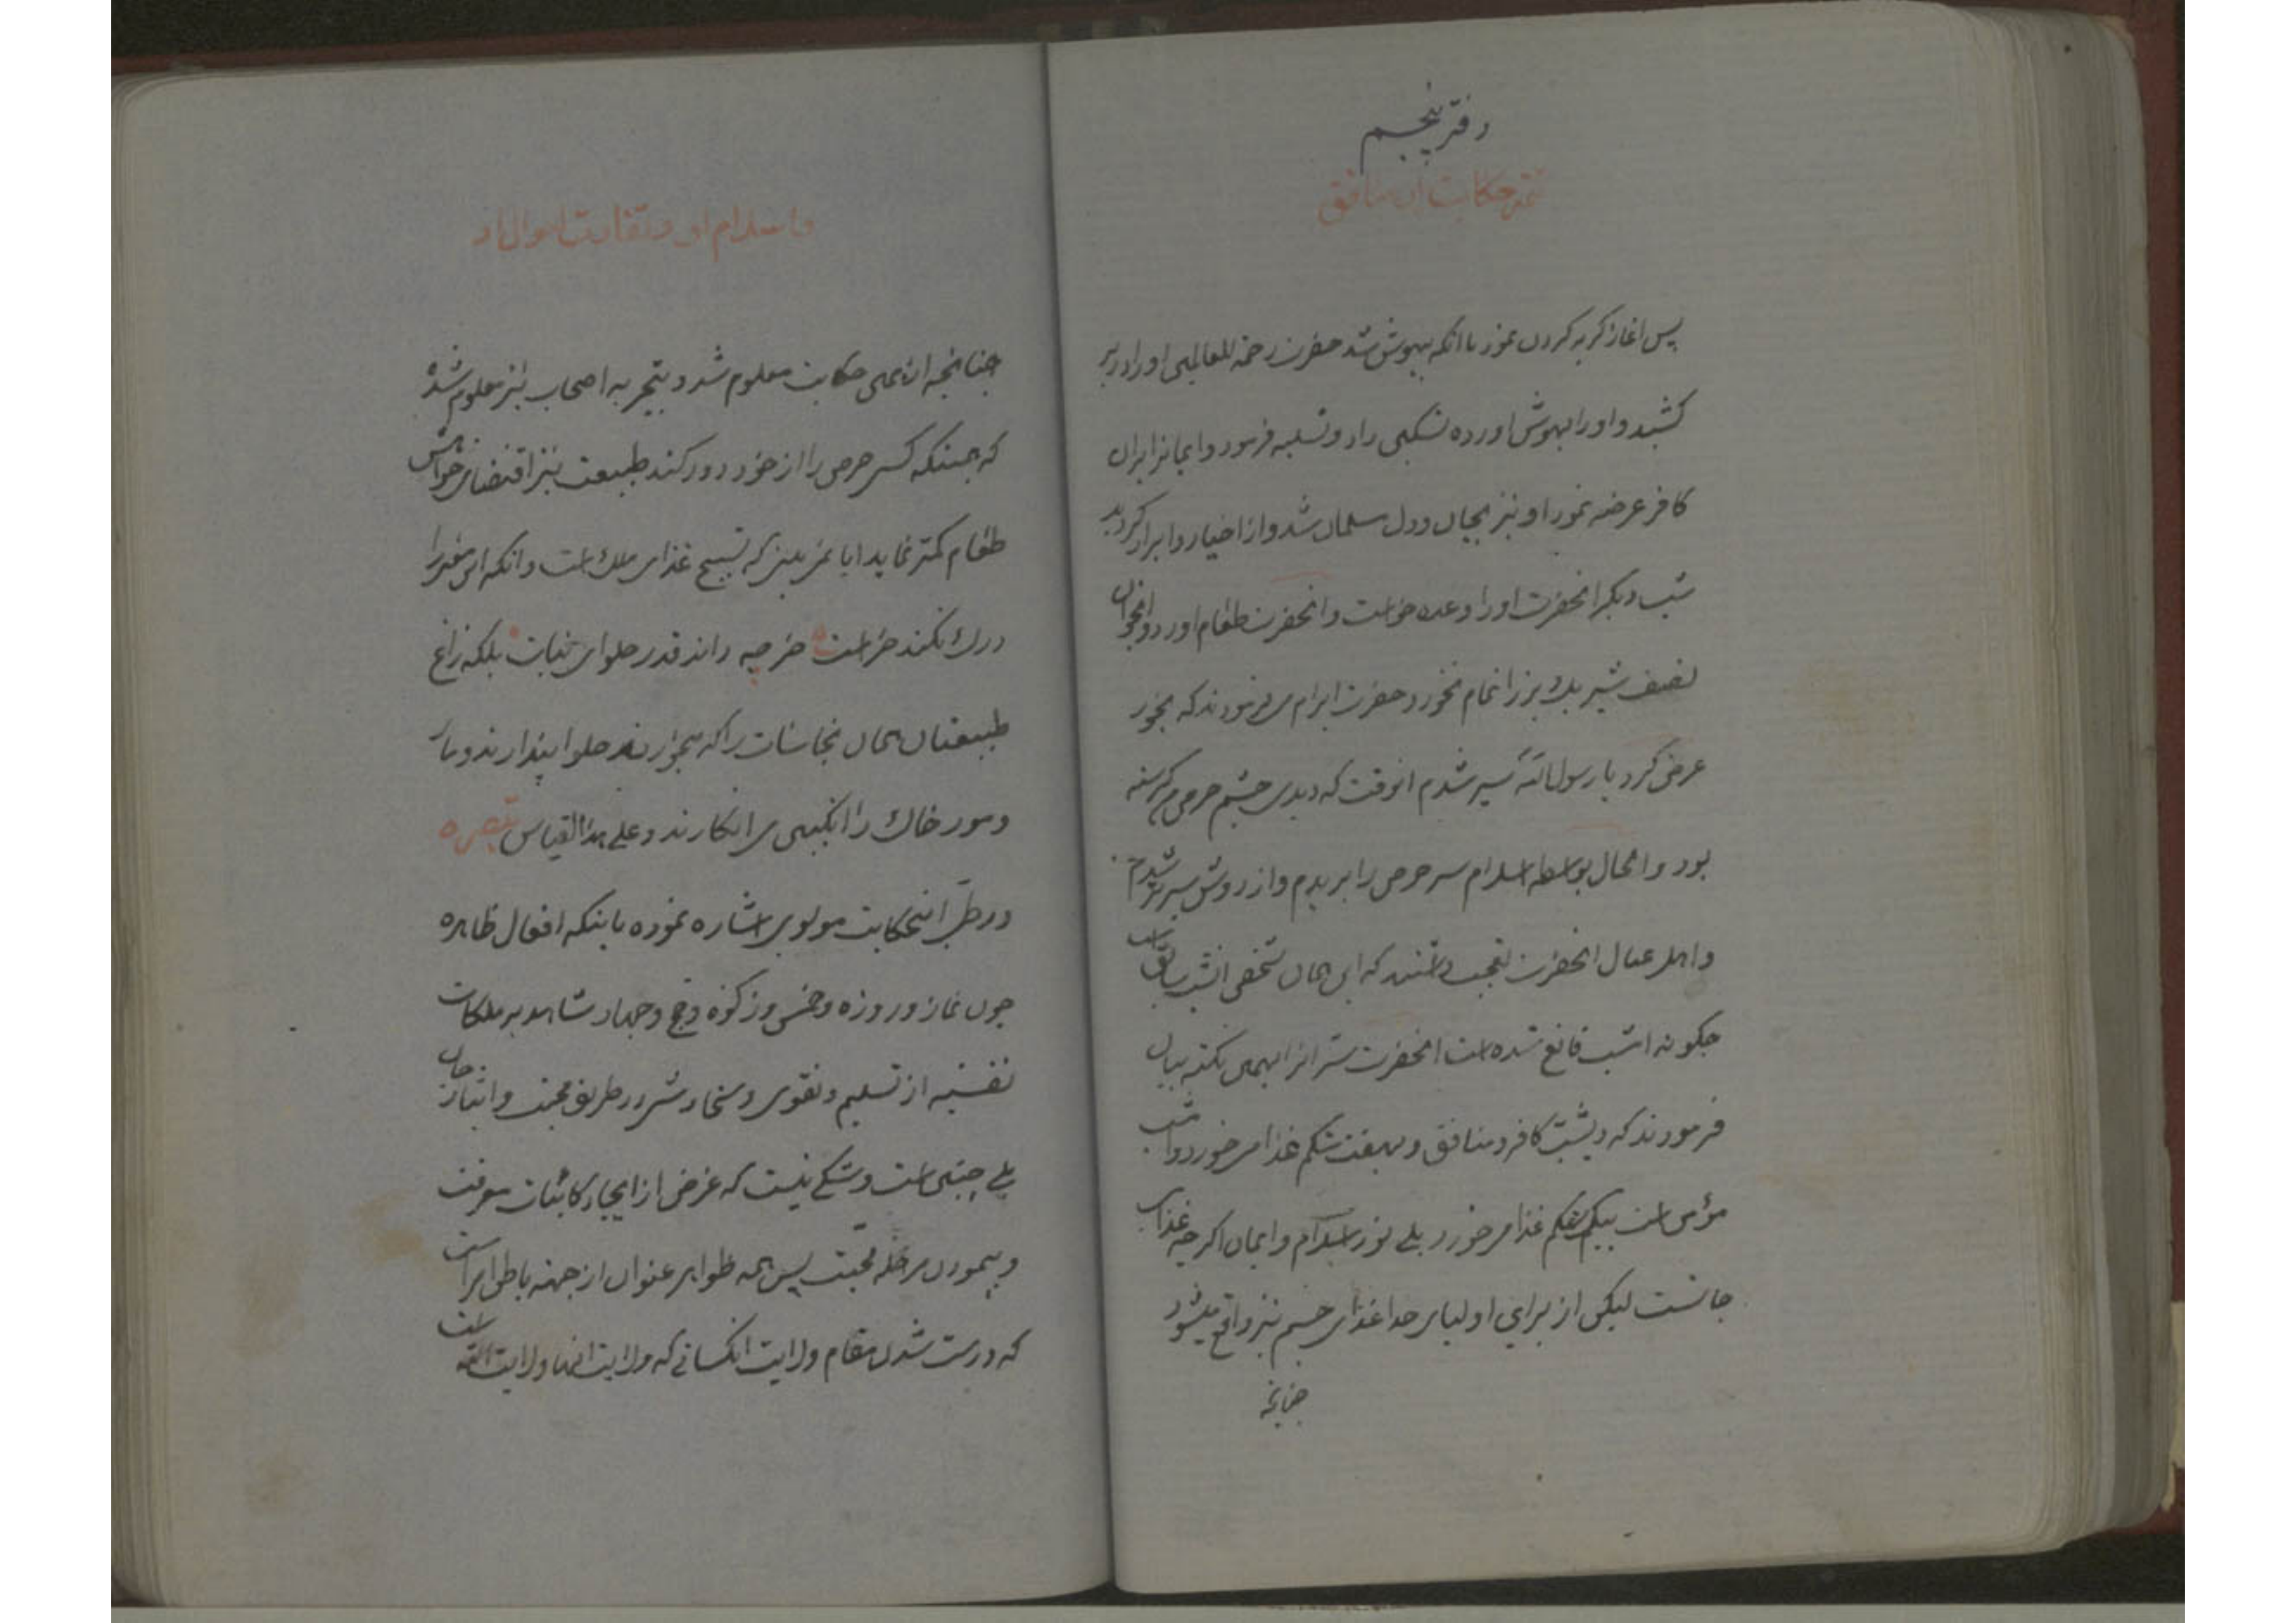 دفتر پنجم
تتمه حکایت آن منافق
پس اغاز کریه کردن نمود تا انکه بیهوش شد حضرت رحمة للعالمین او را در بر
کشید و او را بهوش اورده تسکین داد و تسلیه فرمود و ایمانرا بران
کافر عرضه نمود او نیز بجان و دل مسلمان شد و از اخیار و ابرار کردید
شب دیکر انحضرت او را وعده خواست و انحضرت طعام اورد و انجوان
نصف شیر یک بز را تمام نخورد حضرت ابرام می فرمودند که بخور
عرض کرد یا رسول الله سیر شدم انوقت که دیدی چشم حرص من کرسنه
بود و الحال بواسطه اسلام سر حرص را بریدم و از دوش سیرتر شدم
و اهل عیال انحضرت تعجب داشتند که این همان شخص انشب سابق است
چکونه امشب قانع شده است انحضرت سر انرا بهمین نکته بیان
فرمودند که دیشب کافر و منافق و بهفت شکم غذا می خورد و امشب
مؤمن است بیک شکم غذا میخورد بلی نور اسلام و ایمان اکرچه غذای
جانست لیکن از برای اولیای خدا غذای جسم نیز واقع میشود
چنانچه
و اسلام او و تفاوت احوال او
چنانچه از همین حکایت معلوم شد و بتجربه اصحاب نیز معلوم شده
که همینکه کسی حرص را از خود دور کند طبیعت نیز اقتضای خواهش
طعام کمتر نماید ایا نمی بینی که تسبیح غذای ملک است و انکه این معنی را
درک نکند خر است خر چه داند قدر حلوای نبات بلکه زاغ
طبیعتان همان نجاسات را که میخورند حلوا پندارند و مار
و مور خاک را انکبین می انکارند و علی هذا القیاس تبصره
در طی اینحکایت مولوی اشاره نموده باینکه افعال ظاهره
چون نماز و روزه و خمس و زکوة و حج و جهاد شاهد بر ملکات
نفسیه از تسلیم و تقوی و سخاوتش در طریق محبت و ایثار جان
بلی چنین است و شکی نیست که غرض از ایجاد کاینات معرفت
و پیمودن مرحله محبت پس همه ظواهر عنوان از جهة باطن امر است
که درست شدن مقام ولایت انکسانی که ولایت انها ولایت الله است